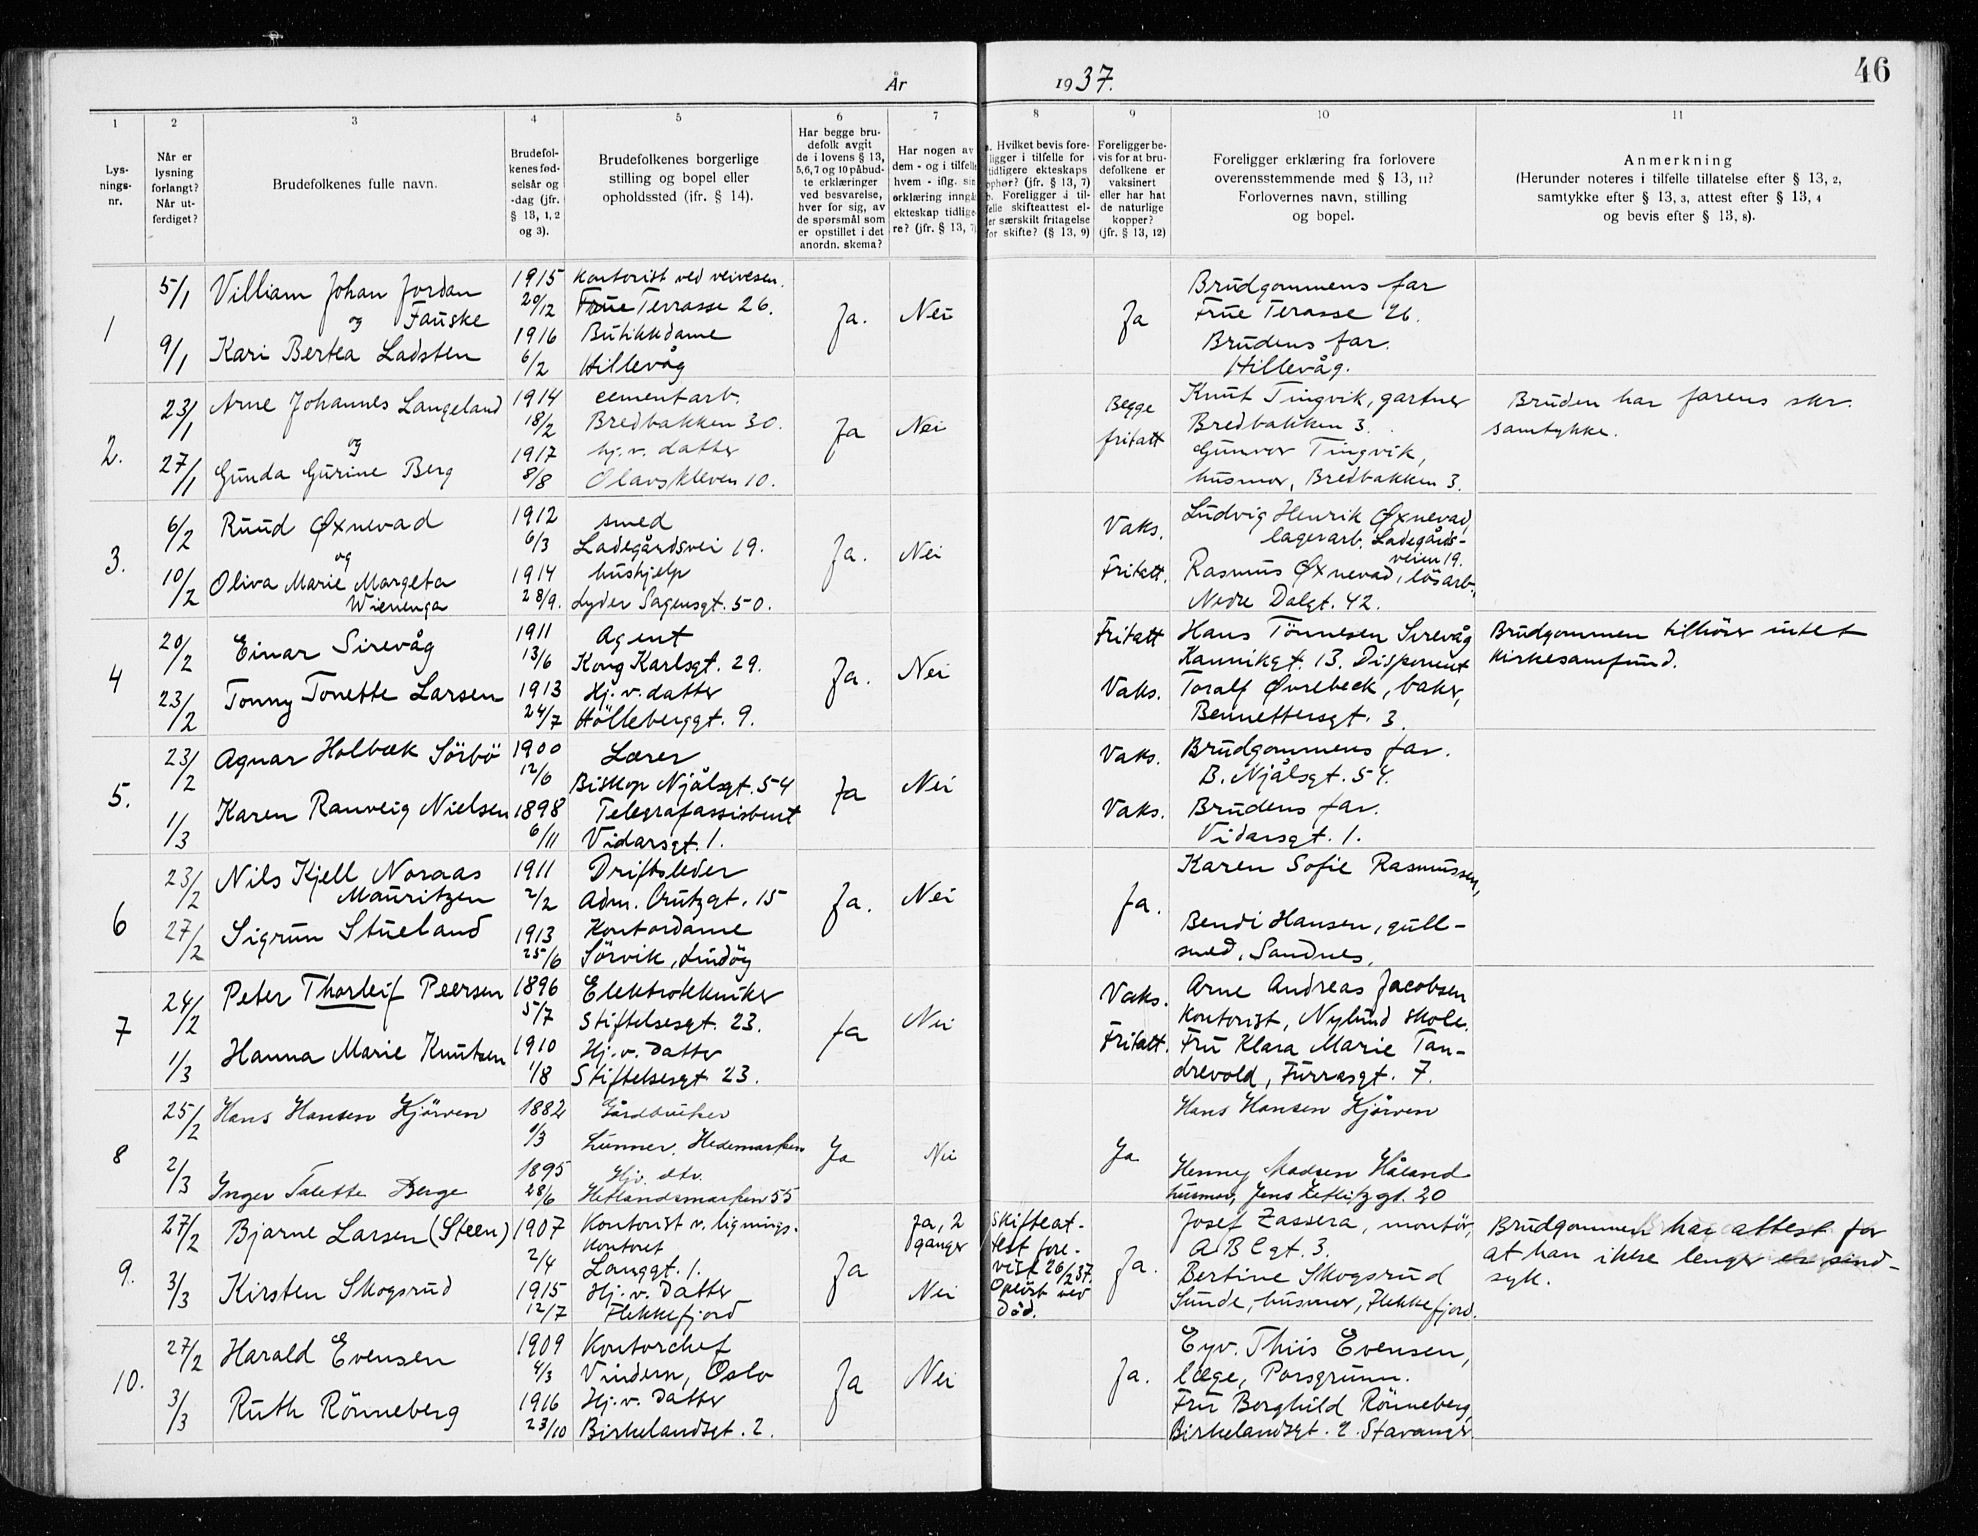 46
År 1937.
1 2 3 4 5 6 7 8 9 10 11
Lys-
nings-
nr.
Når er
lysning
forlangt?
Når ut-
ferdiget?
Brudefolkenes fulle navn.
Brudefol-
kenes fød-
selsår og
-dag (jfr.
§ 13, 1, 2
og 3).
Brudefolkenes borgerlige
stilling og bopel eller
opholdssted (ifr. § 14).
Har begge bru-
defolk avgit
de i lovens § 13,
5,6,7 og 10 påbud-
te erklæringer
ved besvarelse,
hver for sig, av
de spørsmål som
er opstillet i det
anordn. skema?
Har nogen av
dem - og i tilfelle
hvem - iflg. sin
erklæring inngå
ekteskap tidlige-
re? (jfr. § 13, 7)
Hvilket bevis fore-
ligger i tilfelle for
tidligere ekteskaps
ophør? (jfr. § 13, 7)
b. Foreligger i til-
felle skifteattest el-
ler særskilt fritagelse
for skifte? (§ 13, 9)
Foreligger be-
vis for at bru-
defolkene er
vaksinert
eller har hat
de naturlige
kopper?
(jfr. § 13, 12)
Foreligger erklæring fra forlovere
overensstemmende med § 13, 11?
Forlovernes navn, stilling
og bopel.
Anmerkning
(Herunder noteres i tilfelle tillatelse efter § 13, 2,
samtykke efter § 13, 3, attest efter § 13, 4
og bevis efter § 13, 8).
1
5/1
9/1
Villiam Johan Jordan
og Fauske
Kari Bertea Ladsten
1915
20/12
1916
6/2
Kontorist ved veivesen.
Frue Terrasse 26.
Butikkdame
Hillevåg
Ja.
Nei
Ja
Brudgommens far
Frue Terasse 26.
Brudens far.
Hillevåg.
2.
23/1
27/1
Arne Johannes Langeland
og
Gunda Gurine Berg
1914
18/2
1917
8/8
cementarb.
Bredbakken 30.
hj. v. datter
Olavskleven 10.
Ja
Nei
Begge
fritatt
Knut Tingvik, gartner
Bredbakken 3.
Gunvor Tingvik,
husmor, Bredbakken 3.
Bruden har farens skr.
samtykke.
3.
6/2
10/2
Ruud Øxnevad
og
Oliva Marie Margeta
Wienenga
1912
6/3
1914
28/9.
smed
Ladegårdsvei 19.
hushjelp
Lyder Sagensgt. 50.
Ja.
Nei
Vaks.
Fritatt.
Ludvig Henrik Øxnevad,
lagerarb. Ladegårds-
veien 19.
Rasmus Øxnevad, lösarb.,
Nedre Dalgt. 42.
4
20/2
23/2
Einar Sirevåg
Tonny Tonette Larsen
1911
13/6
1913
24/7
Agent
Kong Karlsgt. 29.
Hj. v. datter
Hölleberggt. 9.
Ja.
Nei
Fritatt
Vaks.
Hans Tönnesen Sirevåg
Kannikgt. 13. Disponent
Toralf Övrebeck, baker,
Bennettersgt. 3
Brudgommen tilhörer intet
kirkesamfund.
5.
23/2
1/3
Agnar Holbæk Sörbö
Karen Ranveig Nielsen
1900
12/6
1898
6/11
Lærer
Biskop Njålsgt. 54
Telegrafassistent
Vidarsgt. 1.
Ja
Nei
Vaks.
Vaks.
Brudgommens far.
B. Njålsgt. 54.
Brudens far.
Vidarsgt. 1.
6
23/2
27/2
Nils Kjell Noraas
Mauritzen
Sigrun Stueland
1911
2/2
1913
25/6
Driftsleder
Adm. Crutzgt. 15
Kontordame
Sörvik, Lindöy
Ja.
Nei
Ja.
Karen Sofie Rasmussen,
Bendi Hansen, gull-
smed, Sandnes.
7
24/2
1/3
Peter Thorleif Peersen
Hanna Marie Knutsen
1896
5/7
1910
1/8
Elektrotekniker
Stiftelsesgt. 23.
Hj. v. Datter
Stiftelsesgt 23.
Ja
Nei
Vaks.
Fritatt.
Arne Andreas Jacobsen
Kontorist, Nylund skole.
Fru Klara Marie Tan-
drevold, Furrasgt. 7.
8
25/2
2/3
Hans Hansen Kjörven
Inger Talette Berge
1882
9/3
1895
28/6
Gårdbruker
Lunner, Hedemarken
Hjv. dtr.
Hetlandsmarken 55
Ja
Nei
Ja
Hans Hansen Kjörven
Henny Madsen Håland
husmor, Jens Zetlitzgt. 20
9.
27/2
3/3
Bjarne Larsen (Steen)
Kirsten Skogsrud
1907
2/4
1915
12/7
Kontorist v. lignings-
kontoret
Langgt. 1.
Hj. v. Datter
Flekkefjord
Ja
Ja, 2
ganger
Nei
Skifteat-
test fore-
vist 26/2 37.
Oplöst ved
Död.
Ja.
Josef Zassera, montör,
ABC gt. 3.
Bertine Skogsrud
Sunde, husmor, Flekkefjord.
Brudgommen har attest for
at han ikke lenger er sind-
syk.
10.
27/2
3/3
Harald Evensen
Ruth Rönneberg
1909
4/3
1916
23/10
Kontorchef
Vindern, Oslo
Hj. v. Datter
Birkelandsgt. 2.
Ja
Nei
Ja.
Eyv. Thiis Evensen,
læge, Porsgrunn.
Fru Borghild Rönneberg
Birkelandsgt. 2. Stavanger.